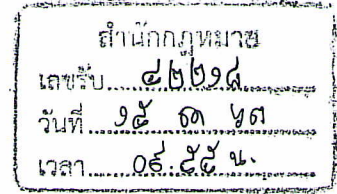 สำนักกฎหมาย
เลขรับ ๔๒๒๑๘
วันที่ ๑๕ ๖๓
เวลา ๐๙.๕๕ น.